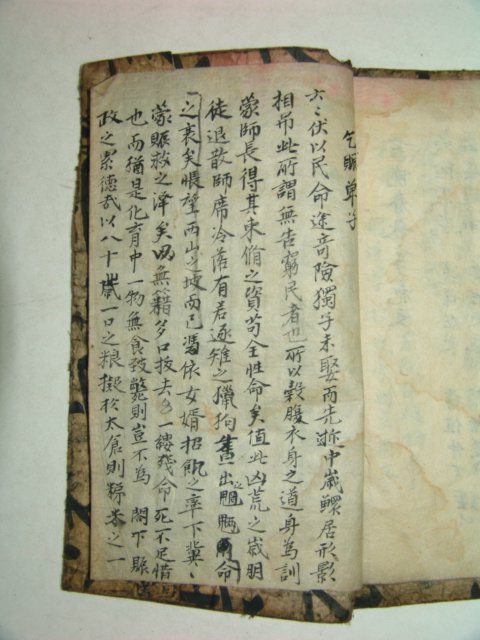 乞賑單子
云〻伏以民命途奇險獨子未娶而先歿中歲鰥居形影
相吊此所謂無告窮民者也所以穀腹衣身之道身為訓
蒙師長得其束脩之資苟全性命矣值此凶荒之歲朋
徒退散師席冷落有若逐雉之獵狗 出 命
之衷矣悵望西山之坡而已憑依女婿招飢之率下冀〻
蒙賑救之澤矣 無籍多口拔去 一縷殘命死不足惜
也而猶是化育中一物無食致斃則豈不為 閤下賑
政之累德哉以八十歲一口之粮擬於太倉則稊米之一